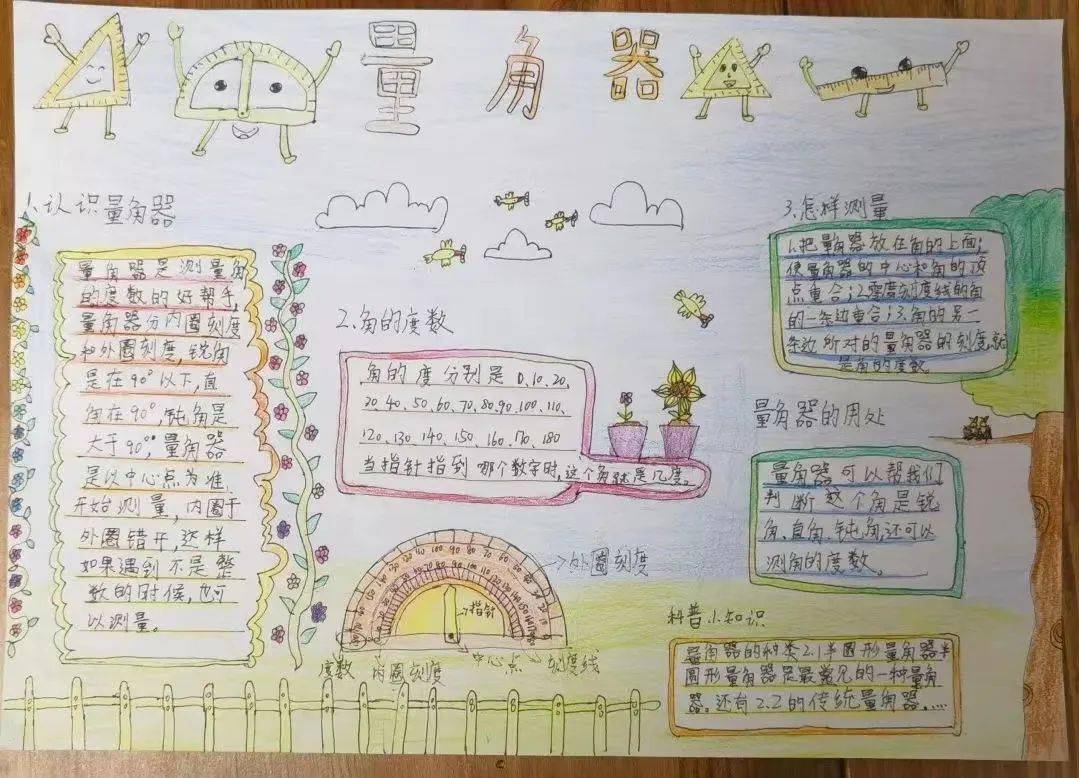 量角器
1.认识量角器
量角器是测量角
的度数的好帮手,
量角器分内圈刻度
和外圈刻度,锐角
是在90°以下,直
角在90°,钝角是
大于90°,量角器
是以中心点为准,
开始测量,内圈于
外圈错开,这样
如果遇到不是整
数的时候,也可
以测量。
2.角的度数
角的度分别是0、10、20、
30、40、50、60、70、80、90、100、110、
120、130、140、150、160、170、180
当指针指到哪个数字时,这个角就是几度。
外圈刻度
指针
度数 内圈刻度 中心点 刻度线
3.怎样测量
1.把量角器放在角的上面;
使量角器的中心和角的顶
点重合;2.零度刻度线的角
的一条边重合;3.角的另一
条边所对的量角器的刻度,就
是角的度数。
量角器的用处
量角器可以帮我们
判断这个角是锐
角、直角、钝角,还可以
测角的度数。
科普小知识
量角器的种类2.1半圆形量角器半
圆形量角器是最常见的一种量角
器。还有2.2的传统量角器。....